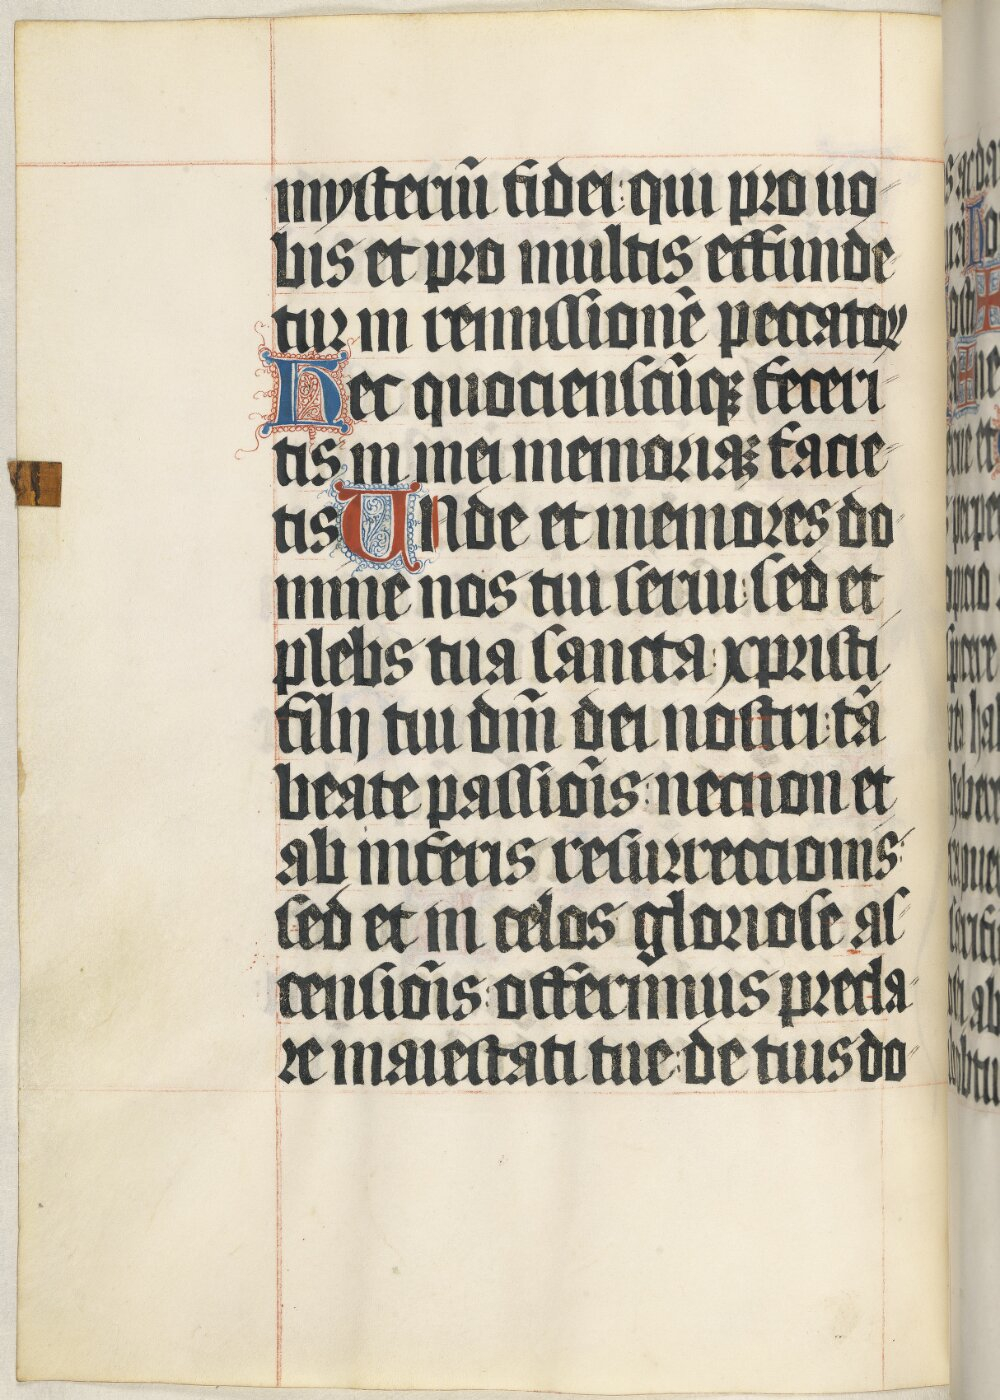 mysteriū fidei: qui pro uo-
bis et pro multis effunde-
tur in remissionē peccatoꝝ
Hec quociensc̄ūqꝫ feceri-
tis in mei memoriaꝫ facie-
tis Unde et memores do-
mine nos tui serui: sed et
plebs tua sancta: xpristi
filij tui dm̄i dei nostri: tā
beate passiōis: necnon et
ab inferis resurrectionis:
sed et in celos gloriose as-
censiōis: offerimus precla-
re maiestati tue: de tuis do-